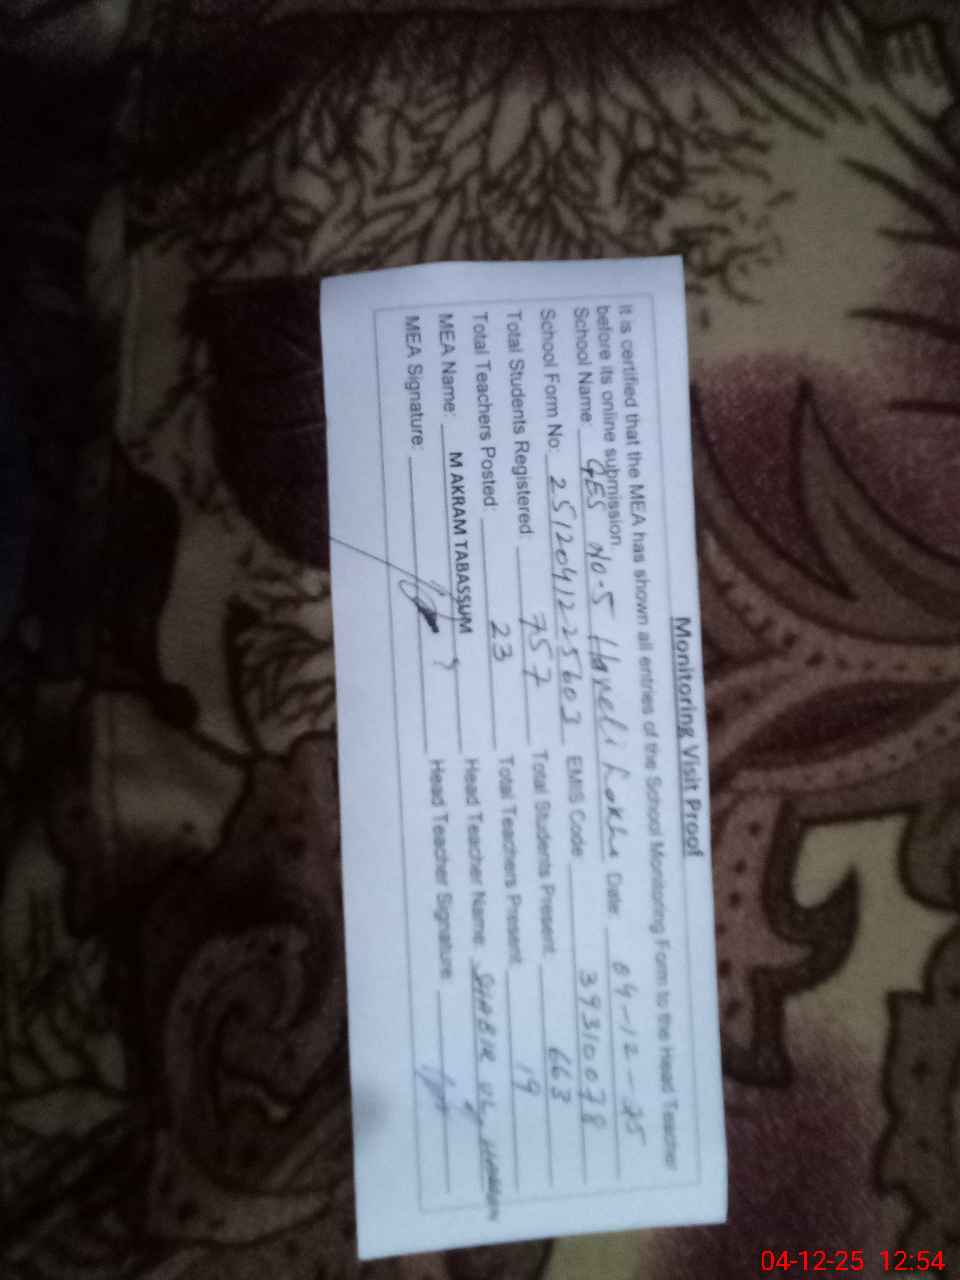 Monitoring Visit Proof
It is certified that the MEA has shown all entries of the School Monitoring Form to the Head Teacher
before its online submission
School Name: GES No-5 Haveli Lakha Date: 04-12-25
School Form No: 2512041225603 EMIS Code: 39310078
Total Students Registered: 757 Total Students Present: 663
Total Teachers Posted: 23 Total Teachers Present: 19
MEA Name: M AKRAM TABASSUM Head Teacher Name: SHABIR
MEA Signature: Head Teacher Signature:
04-12-25 12:54